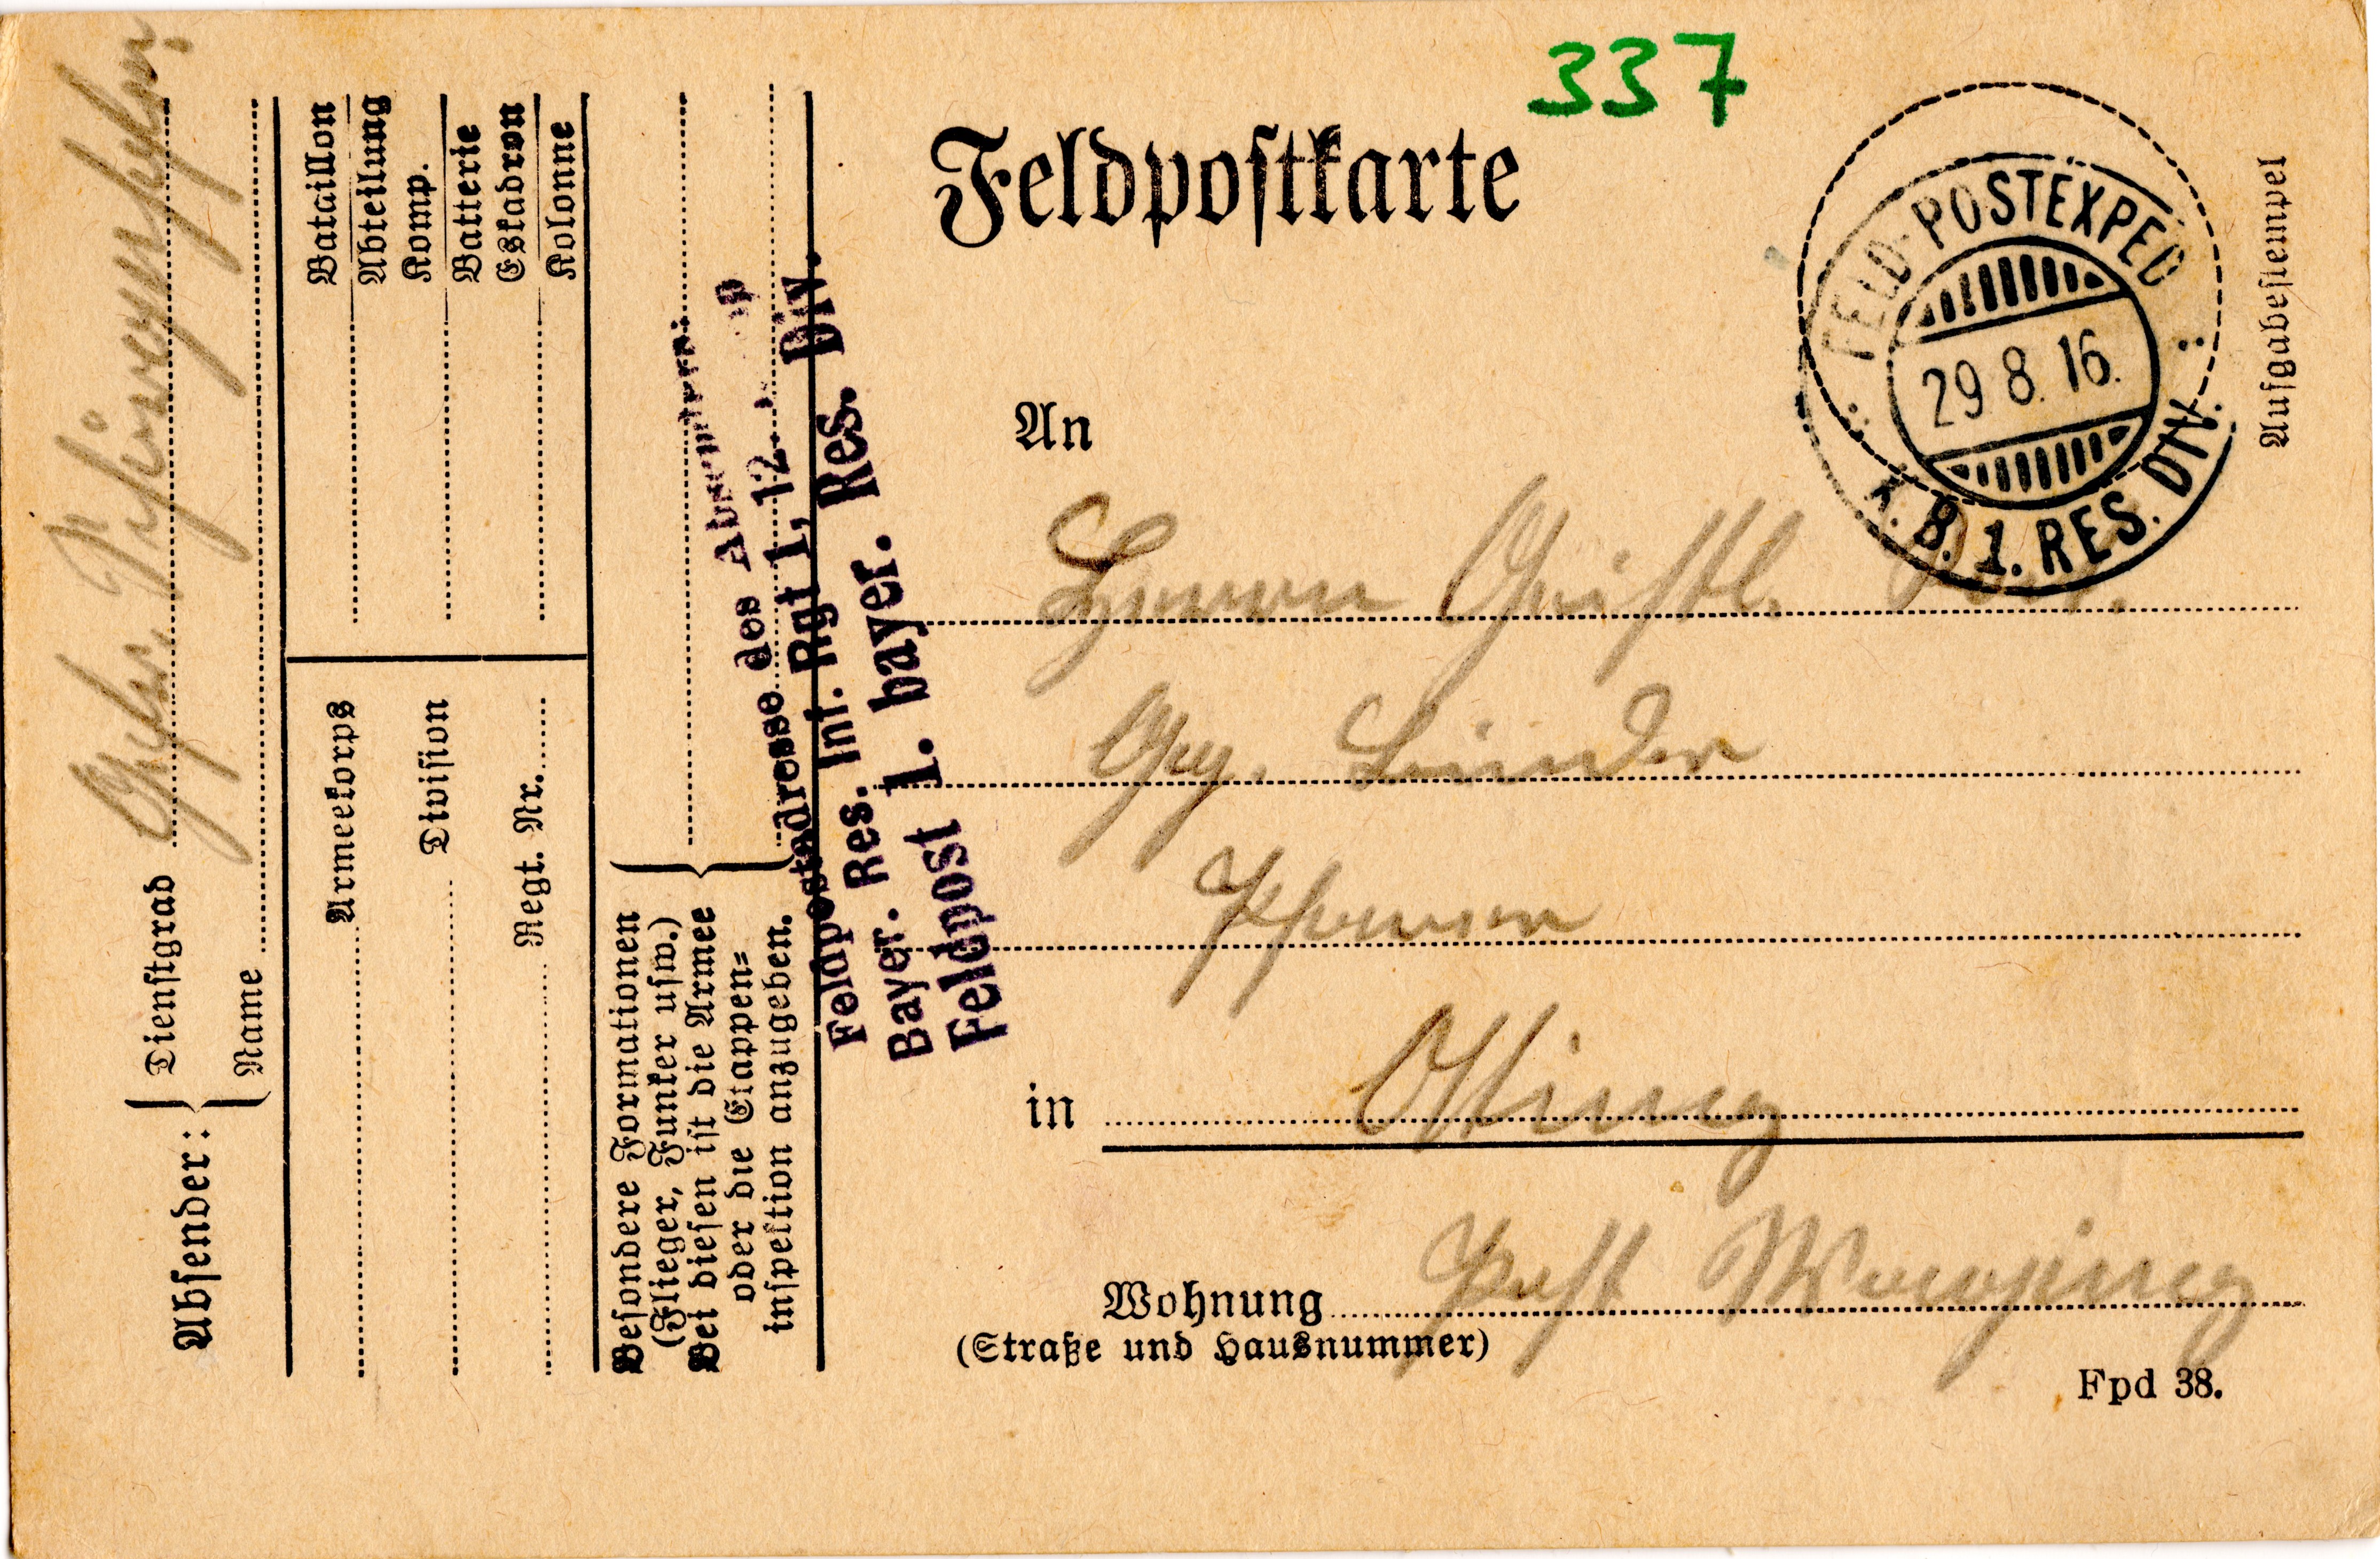 337
Feldpostkarte
Aufgabestempel
FELD-POSTEXPED
29 8. 16.
K. B. 1. RES. DIV.
An
Herrn Geistl. Rat.
Gg. Linder
Pfarrer
in Otting
Wohnung Post Waging
(Straße und Hausnummer)
Fpd 38.
Absender:
Dienstgrad Gefr.
Name
Bataillon
Abteilung
Komp.
Batterie
Eskadron
Kolonne
Armeekorps
Division
Regt. Nr.
Besondere Formationen
(Flieger, Funker usw.)
Bei diesen ist die Armee
oder die Etappen-
inspektion anzugeben.
Feldpostadresse des 12.
Bayer. Res. Inf. Rgt 1,
Feldpost 1. bayer. Res. Div.